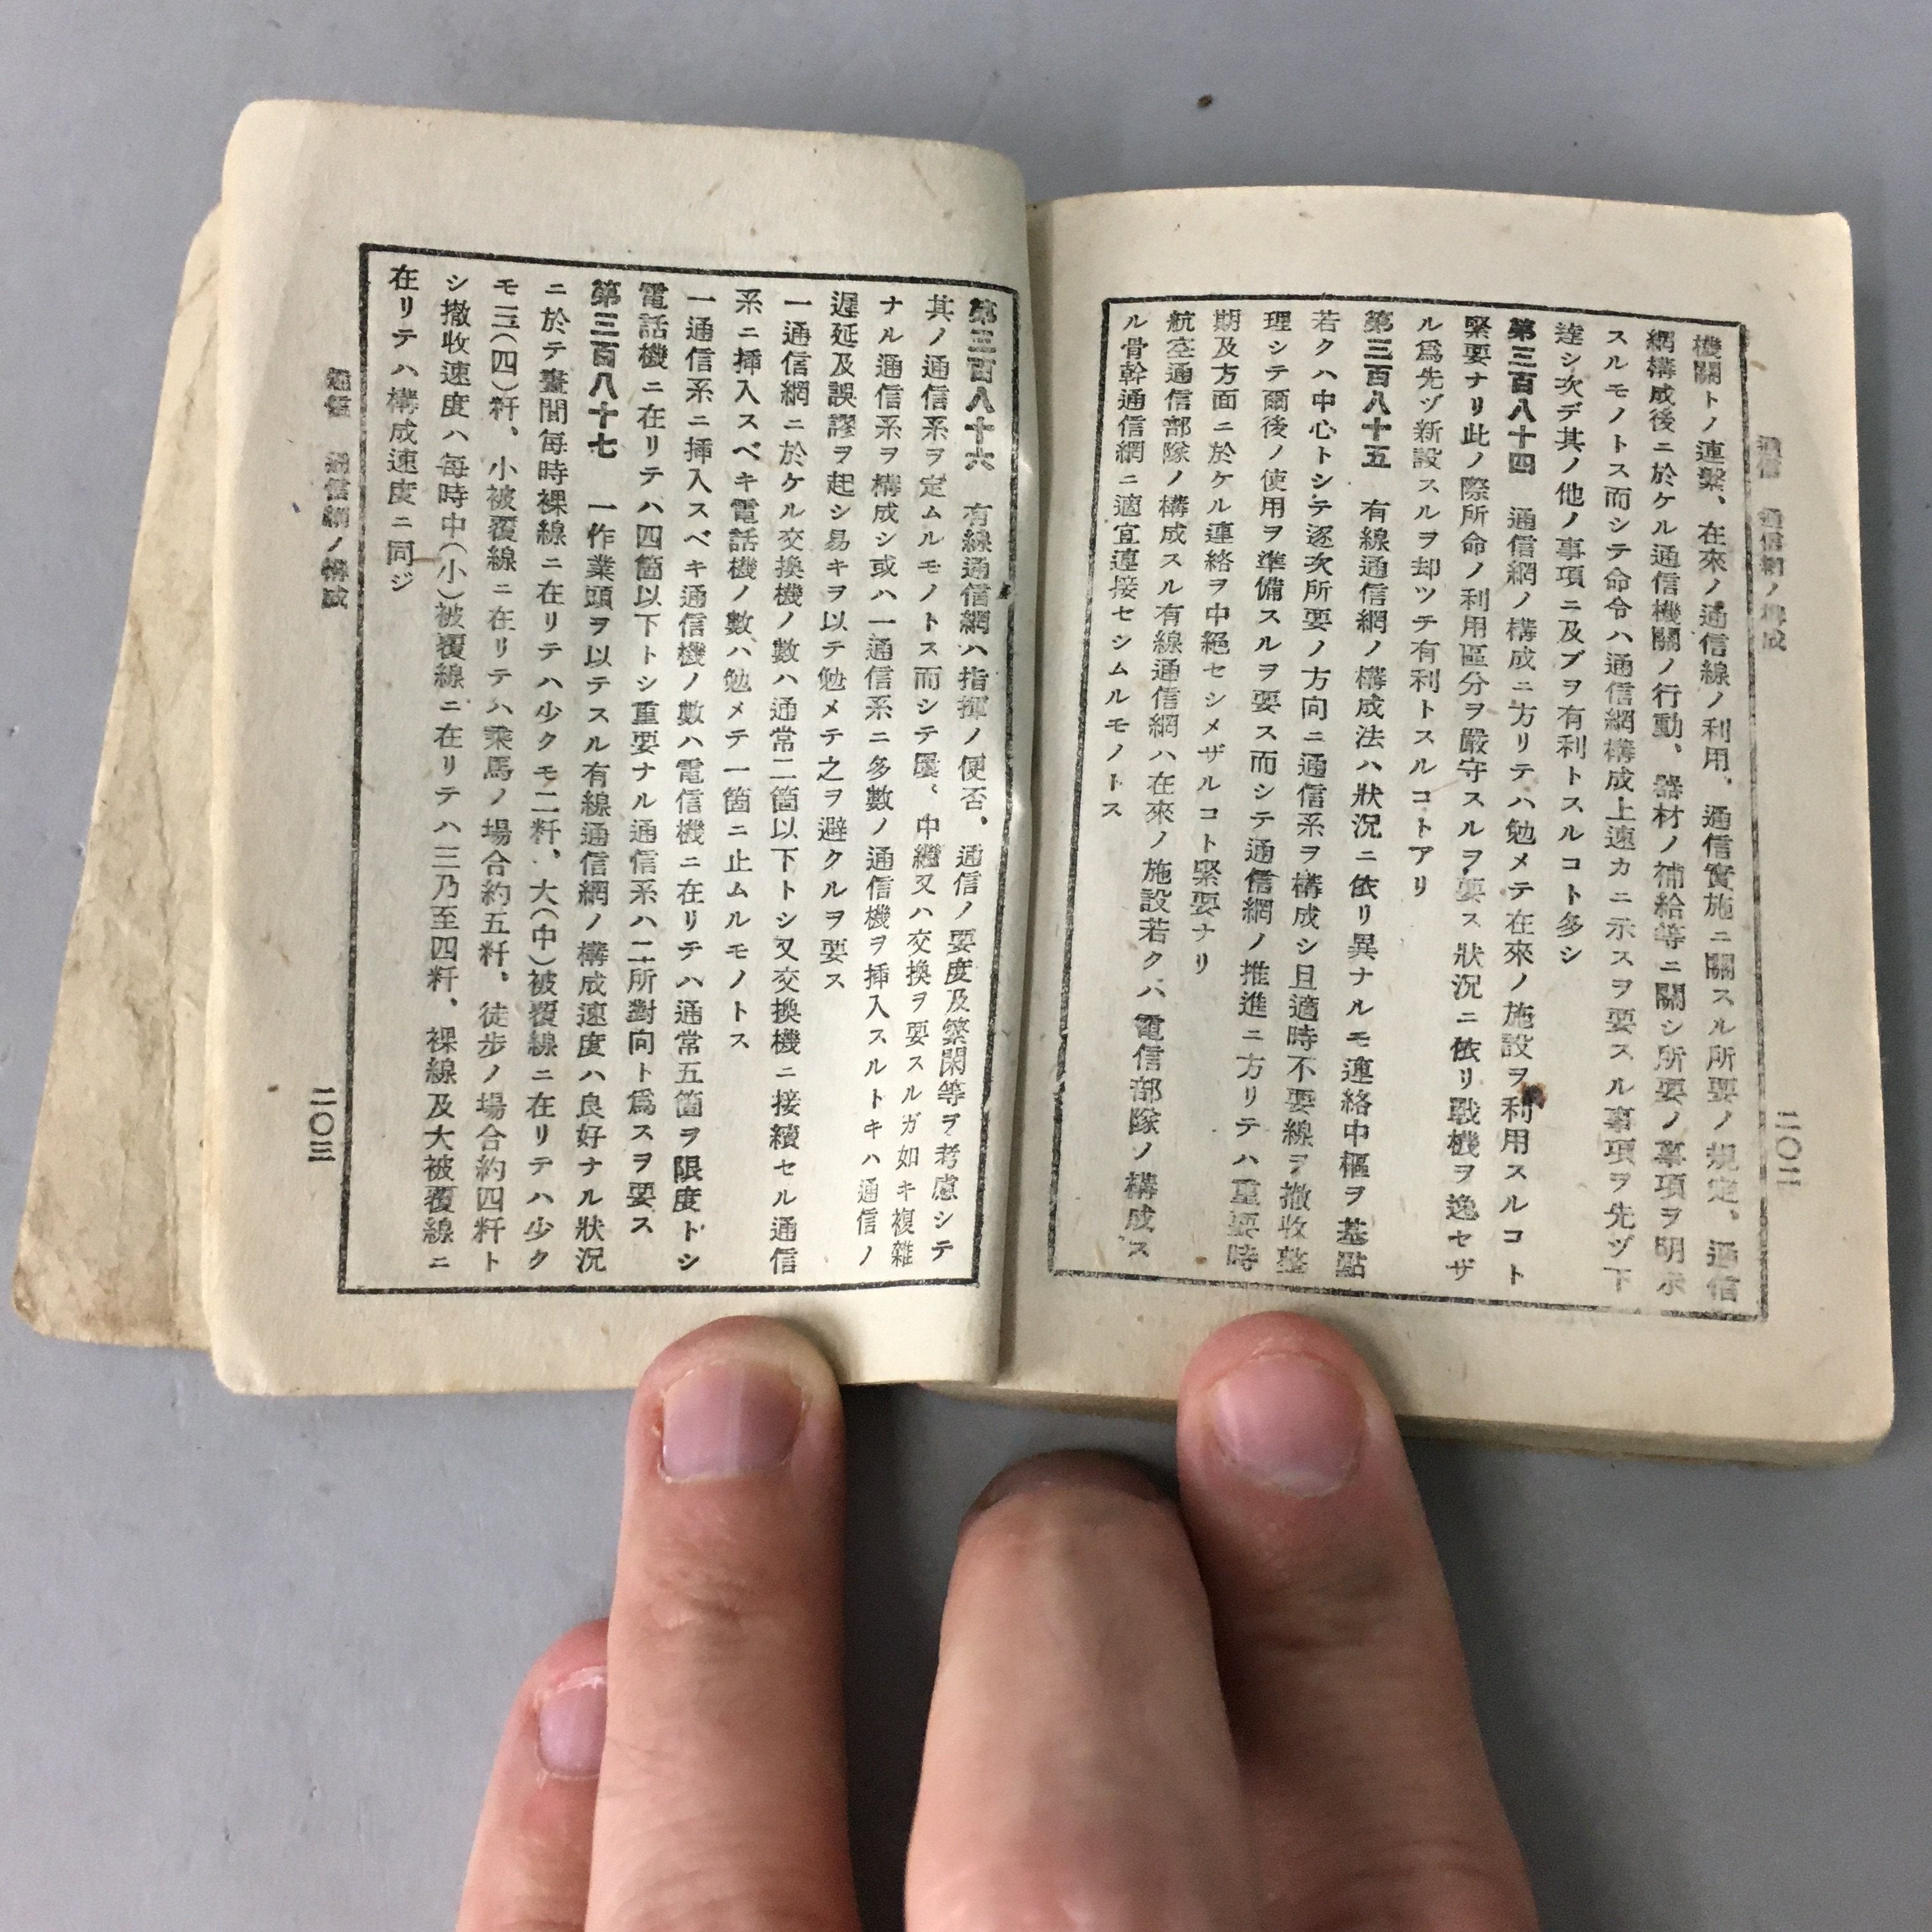 通信　通信網ノ構成
二〇二
機關トノ連繫、在來ノ通信線ノ利用、通信實施ニ關スル所要ノ規定、通信
網構成後ニ於ケル通信機關ノ行動、器材ノ補給等ニ關シ所要ノ事項ヲ明示
スルモノトス而シテ命令ハ通信網構成上速カニ示スヲ要スル事項ヲ先ヅ下
達シ次デ其ノ他ノ事項ニ及ブヲ有利トスルコト多シ
第三百八十四　通信網ノ構成ニ方リテハ勉メテ在來ノ施設ヲ利用スルコト
緊要ナリ此ノ際所命ノ利用區分ヲ嚴守スルヲ要ス狀況ニ依リ戰機ヲ逸セザ
ル爲先ヅ新設スルヲ却ツテ有利トスルコトアリ
第三百八十五　有線通信網ノ構成法ハ狀況ニ依リ異ナルモ連絡中樞ヲ基點
若クハ中心トシテ逐次所要ノ方向ニ通信系ヲ構成シ且適時不要線ヲ撤收整
理シテ爾後ノ使用ヲ準備スルヲ要ス而シテ通信網ノ推進ニ方リテハ重要時
期及方面ニ於ケル連絡ヲ中絕セシメザルコト緊要ナリ
航空通信部隊ノ構成スル有線通信網ハ在來ノ施設若クハ電信部隊ノ構成ス
ル骨幹通信網ニ適宜連接セシムルモノトス
第三百八十六　有線通信網ハ指揮ノ便否、通信ノ要度及繁閑等ヲ考慮シテ
其ノ通信系ヲ定ムルモノトス而シテ屢〻中繼又ハ交換ヲ要スルガ如キ複雜
ナル通信系ヲ構成シ或ハ一通信系ニ多數ノ通信機ヲ挿入スルトキハ通信ノ
遲延及誤謬ヲ起シ易キヲ以テ勉メテ之ヲ避クルヲ要ス
一通信網ニ於ケル交換機ノ數ハ通常二箇以下トシ又交換機ニ接續セル通信
系ニ挿入スベキ電話機ノ數ハ勉メテ一箇ニ止ムルモノトス
一通信系ニ挿入スベキ通信機ノ數ハ電信機ニ在リテハ通常五箇ヲ限度トシ
電話機ニ在リテハ四箇以下トシ重要ナル通信系ハ二所對向ト爲スヲ要ス
第三百八十七　一作業頭ヲ以テスル有線通信網ノ構成速度ハ良好ナル狀況
ニ於テ晝間每時裸線ニ在リテハ少クモ二粁、大(中)被覆線ニ在リテハ少ク
モ三(四)粁、小被覆線ニ在リテハ乘馬ノ場合約五粁、徒步ノ場合約四粁ト
シ撤收速度ハ每時中(小)被覆線ニ在リテハ三乃至四粁、裸線及大被覆線ニ
在リテハ構成速度ニ同ジ
通信　通信網ノ構成
二〇三